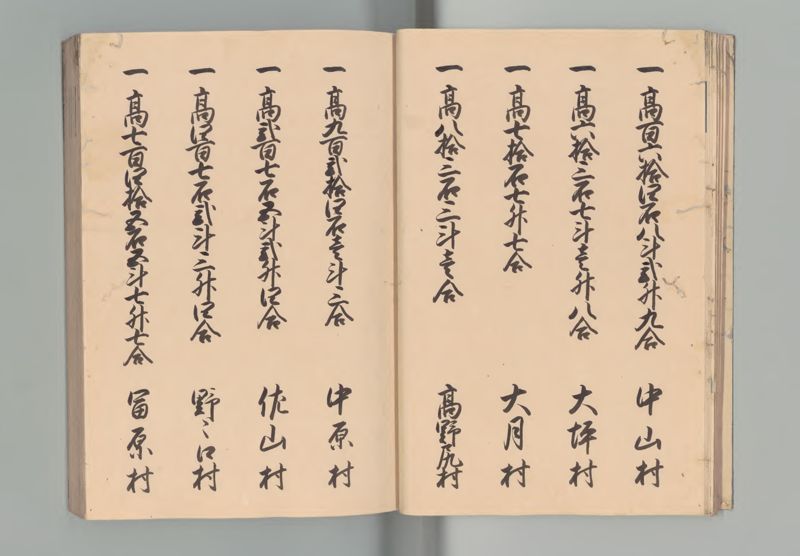 一 高百六拾四石八斗弐升九合 中山村
一 高六拾三石七斗壱升八合 大坪村
一 高七拾石七升七合 大月村
一 高八拾三石三斗壱合 高野尻村
一 高九百弐拾四石壱斗三合 中原村
一 高弐百七石五斗弐升四合 佐山村
一 高四百七石弐斗三升四合 野々口村
一 高七百四拾五石五斗七升七合 冨原村